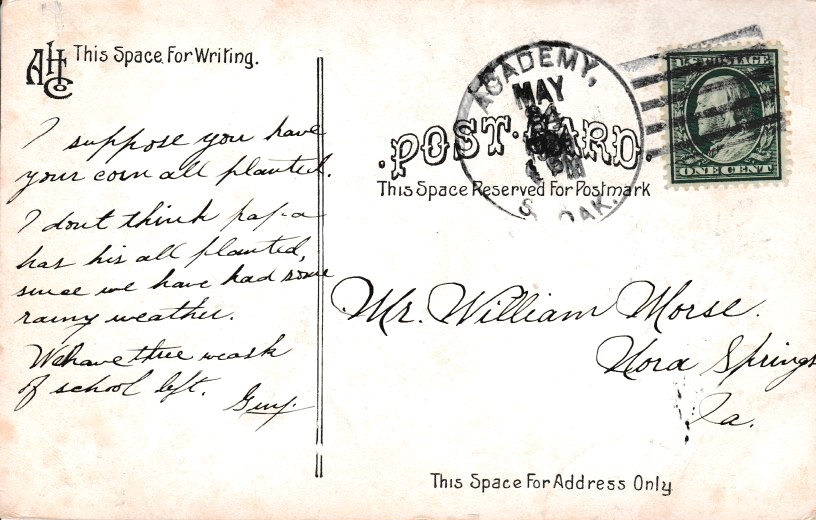 AHCo
This Space For Writing.
I suppose you have
your corn all planted.
I dont think papa
has his all planted,
since we have had some
rainy weather.
We have three weask
of school left.
ACADEMY,
MAY
S. DAK.
U.S. POSTAGE
ONE CENT
POST CARD.
This Space Reserved For Postmark
Mr. William Morse.
Nora Springs
Ia.
This Space For Address Only